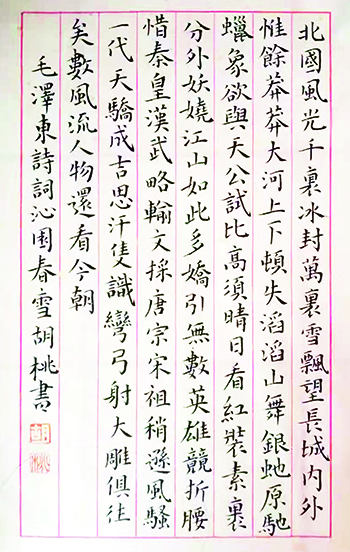 北國風光千裏冰封萬裏雪飄望長城內外
惟餘莽莽大河上下頓失滔滔山舞銀虵原馳
蠟象欲與天公試比高須晴日看紅裝素裹
分外妖嬈江山如此多嬌引無數英雄競折腰
惜秦皇漢武略輸文採唐宗宋祖稍遜風騷
一代天驕成吉思汗隻識彎弓射大雕俱往
矣數風流人物還看今朝
毛澤東詩詞沁園春雪胡桃書